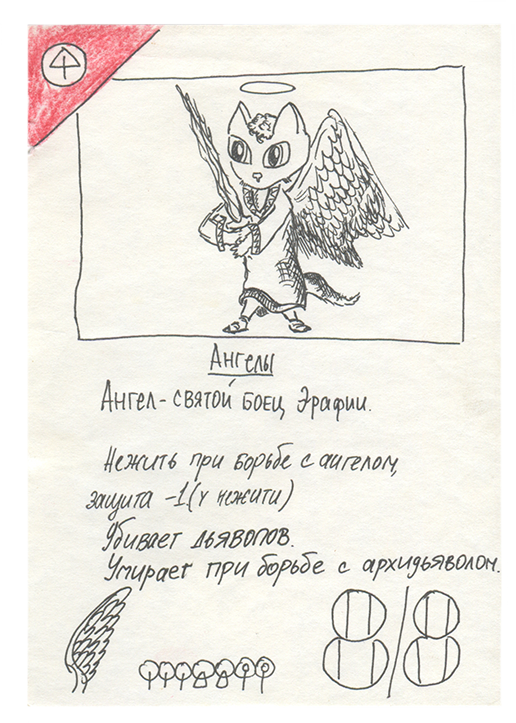 4
Ангелы
Ангел - святой боец Эрафии.
Нежить при борьбе с ангелом,
защита -1 (у нежити)
Убивает дьяволов.
Умирает при борьбе с архидьяволом.
8/8